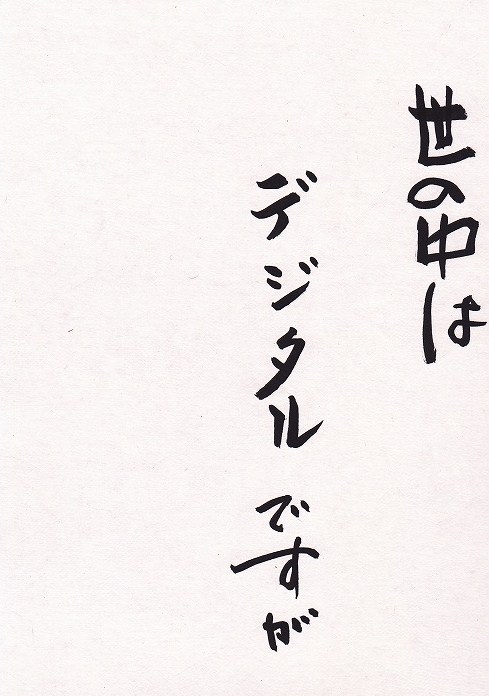 世の中は
デジタルですが